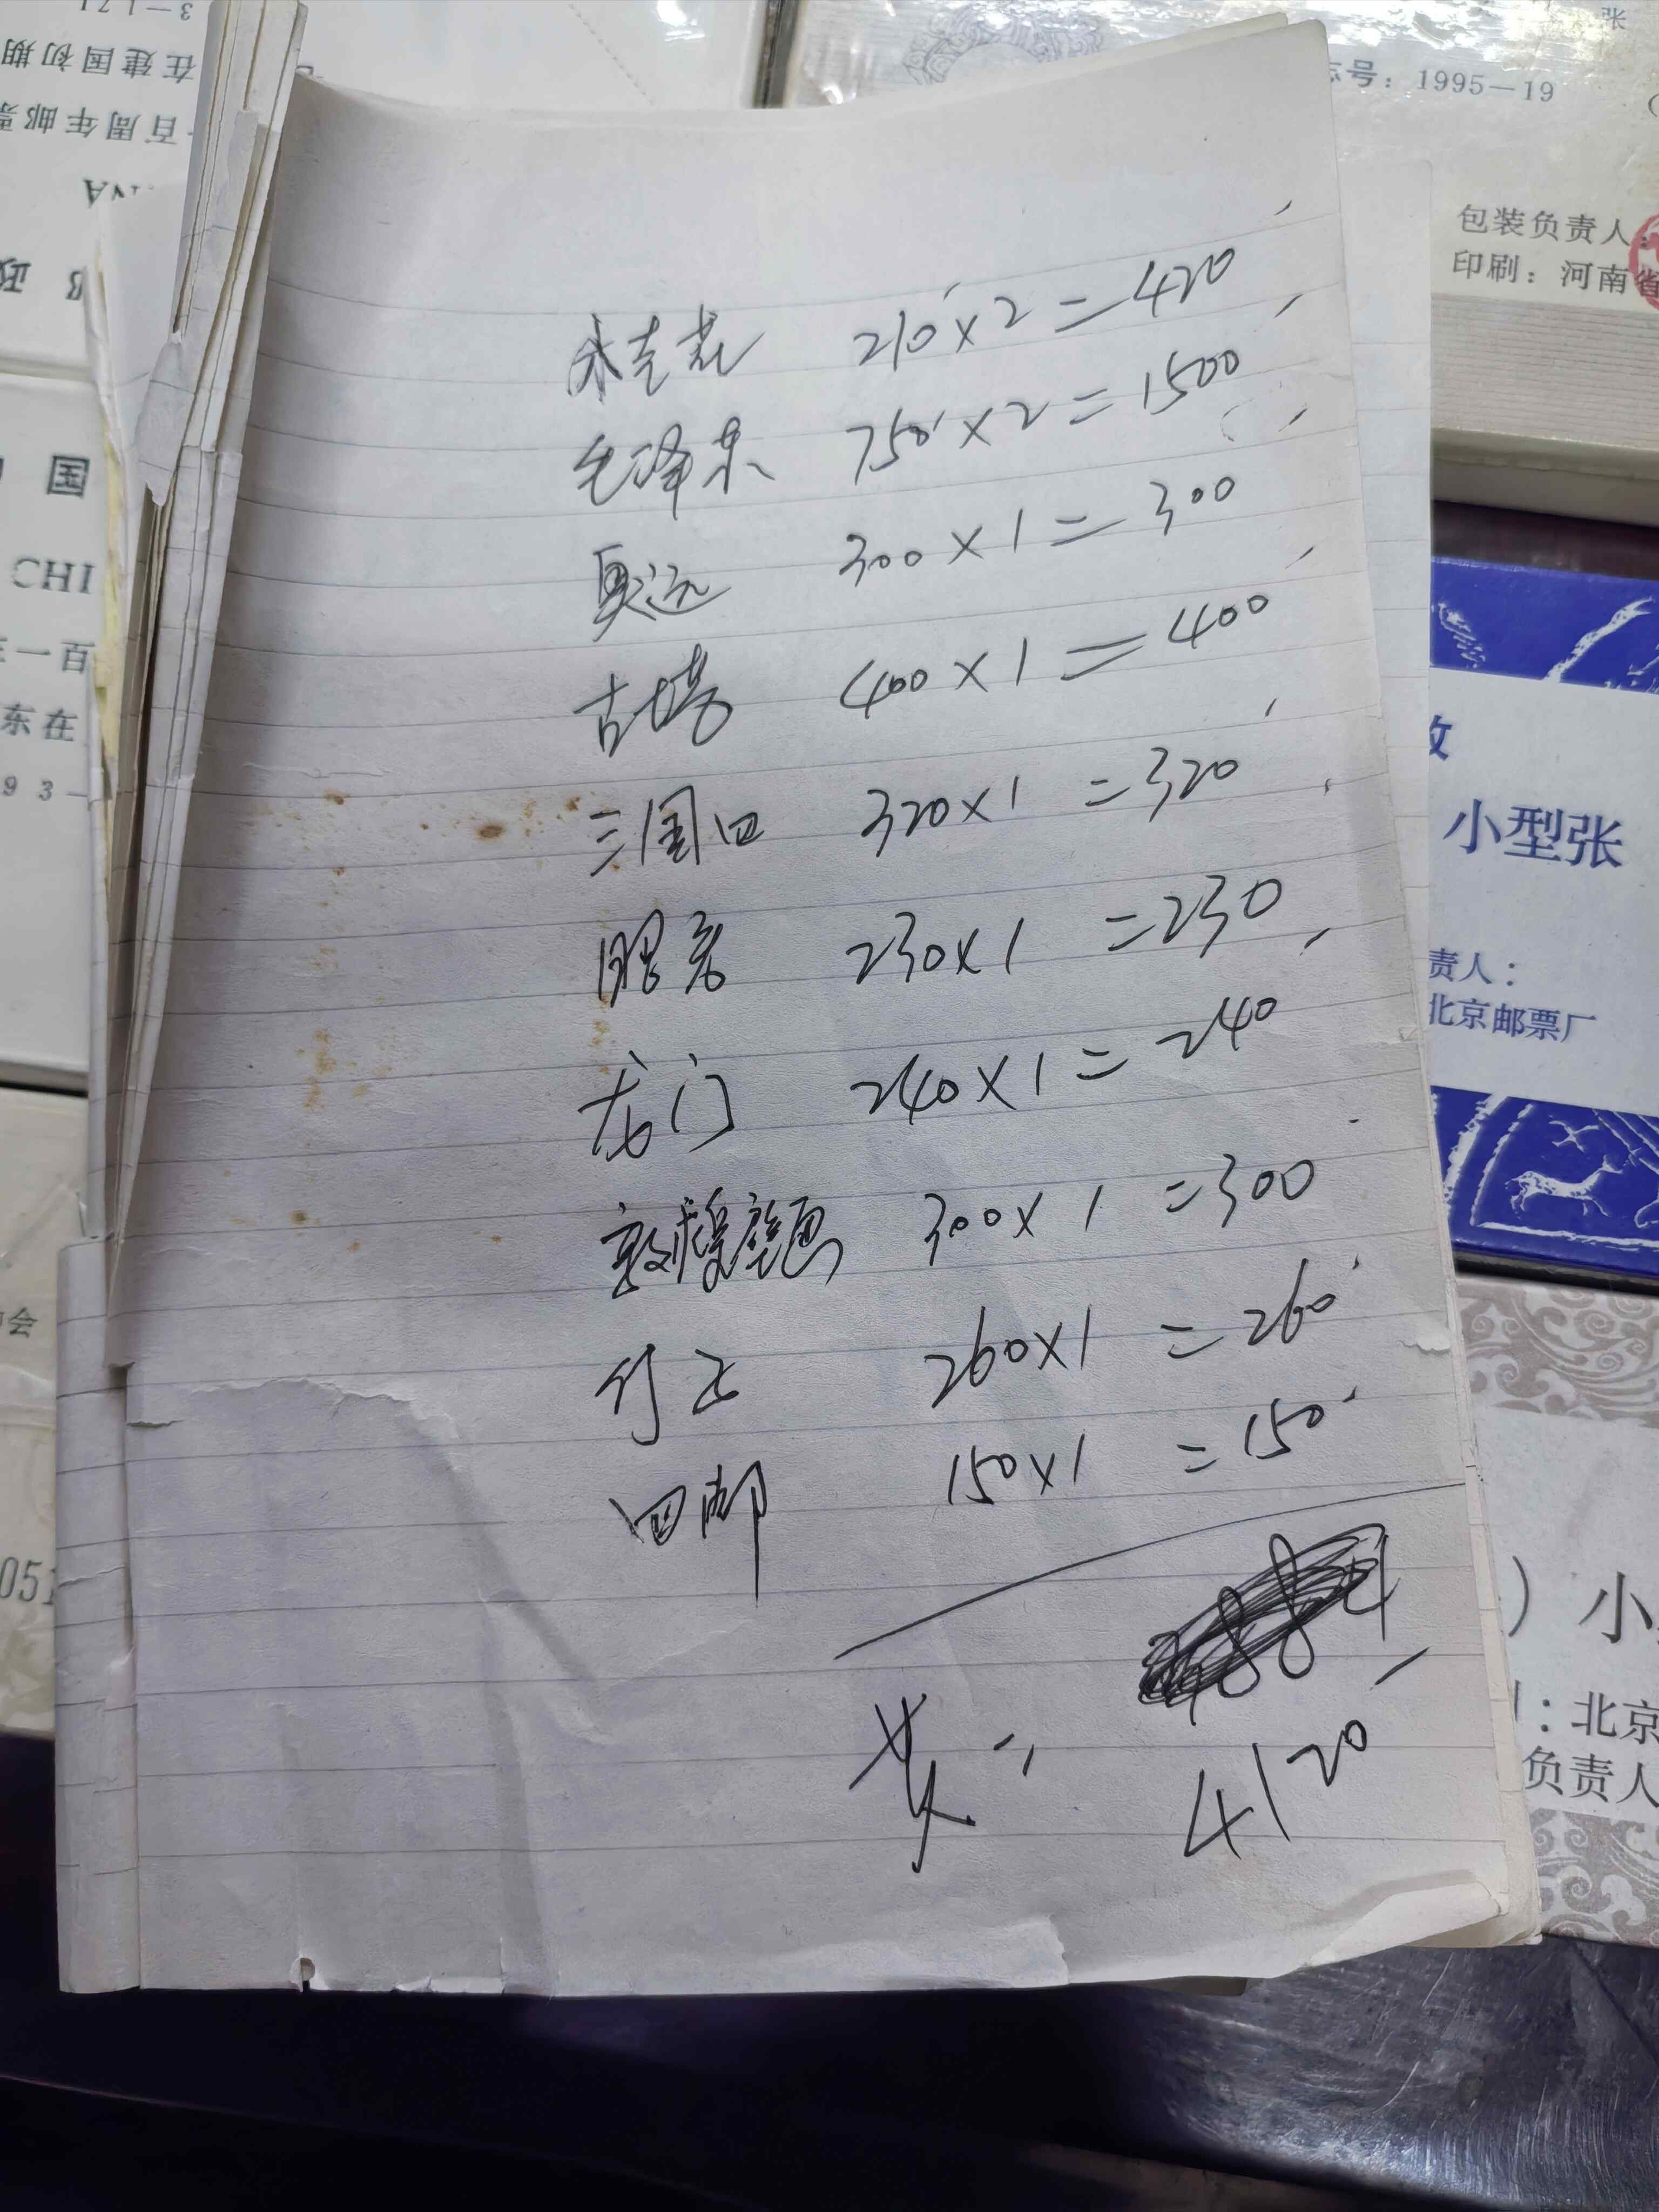 志号：1995—19
包装负责人：
印刷：河南省
张
3—171
在建国初期
百周年邮票
国
CHI
一百
东在
93—
051
210×2=420
毛泽东 750×2=1500
奥运 300×1=300
古塔 400×1=400
三国四 320×1=320
230×1=230
龙门 240×1=240
敦煌壁画 300×1=300
260×1=260
回邮 150×1=150
共= 4120
小型张
责人：
北京邮票厂
）小
：北京
负责人